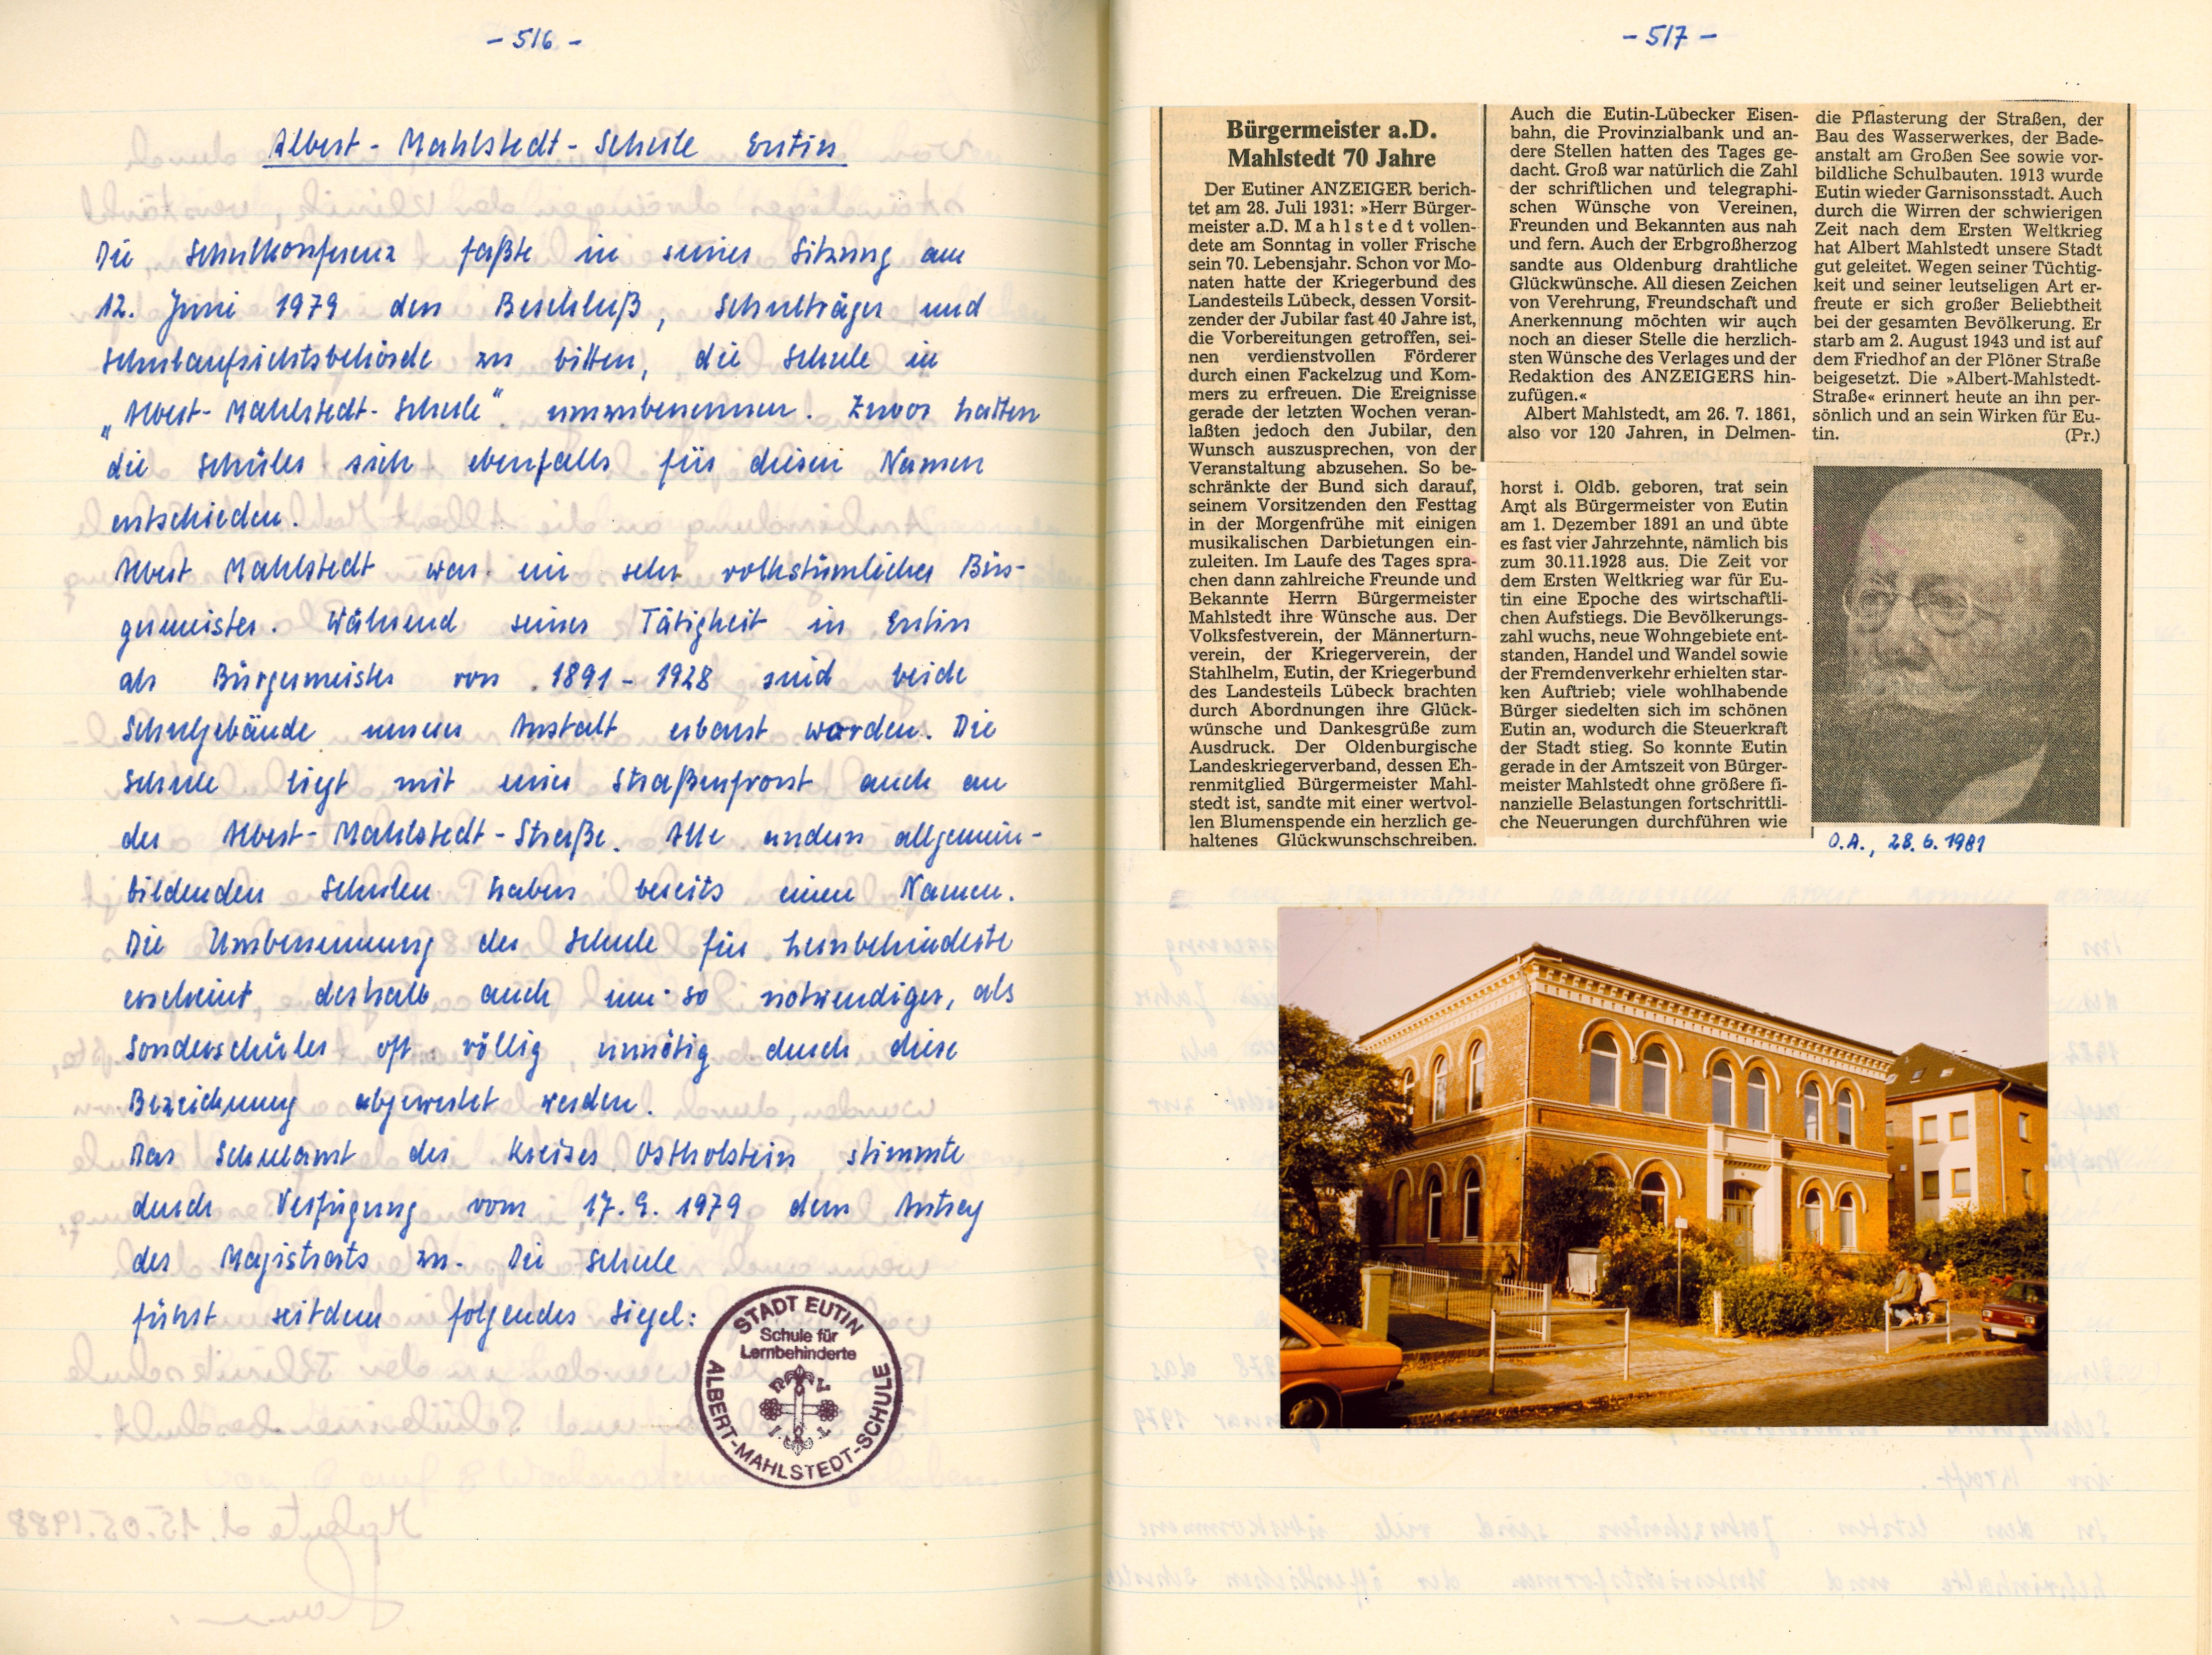 - 516 -
Albert-Mahlstedt-Schule Eutin
Die Schulkonferenz faßte in seiner Sitzung am
12. Juni 1979 den Beschluß, Schulträger und
Schulaufsichtsbehörde zu bitten, die Schule in
„Albert-Mahlstedt-Schule" umzubenennen. Zuvor hatten
die Schüler sich ebenfalls für diesen Namen
entschieden.
Albert Mahlstedt war ein sehr volkstümlicher Bür-
germeister. Während seiner Tätigkeit in Eutin
als Bürgermeister von 1891-1928 sind beide
Schulgebäude unserer Anstalt erbaut worden. Die
Schule liegt mit einer Straßenfront auch an
der Albert-Mahlstedt-Straße. Alle andern allgemein-
bildenden Schulen haben bereits einen Namen.
Die Umbenennung der Schule für Lernbehinderte
erscheint deshalb auch um so notwendiger, als
Sonderschüler oft völlig unnötig durch diese
Bezeichnung abgewertet werden.
Das Schulamt des Kreises Ostholstein stimmte
durch Verfügung vom 17.9.1979 dem Antrag
des Magistrats zu. Die Schule
führt seitdem folgendes Siegel:
STADT EUTIN
Schule für
Lernbehinderte
ALBERT-MAHLSTEDT-SCHULE
- 517 -
Bürgermeister a.D.
Mahlstedt 70 Jahre
Der Eutiner ANZEIGER berich-
tet am 28. Juli 1931: »Herr Bürger-
meister a.D. Mahlstedt vollen-
dete am Sonntag in voller Frische
sein 70. Lebensjahr. Schon vor Mo-
naten hatte der Kriegerbund des
Landesteils Lübeck, dessen Vorsit-
zender der Jubilar fast 40 Jahre ist,
die Vorbereitungen getroffen, sei-
nen verdienstvollen Förderer
durch einen Fackelzug und Kom-
mers zu erfreuen. Die Ereignisse
gerade der letzten Wochen veran-
laßten jedoch den Jubilar, den
Wunsch auszusprechen, von der
Veranstaltung abzusehen. So be-
schränkte der Bund sich darauf,
seinem Vorsitzenden den Festtag
in der Morgenfrühe mit einigen
musikalischen Darbietungen ein-
zuleiten. Im Laufe des Tages spra-
chen dann zahlreiche Freunde und
Bekannte Herrn Bürgermeister
Mahlstedt ihre Wünsche aus. Der
Volksfestverein, der Männerturn-
verein, der Kriegerverein, der
Stahlhelm, Eutin, der Kriegerbund
des Landesteils Lübeck brachten
durch Abordnungen ihre Glück-
wünsche und Dankesgrüße zum
Ausdruck. Der Oldenburgische
Landeskriegerverband, dessen Eh-
renmitglied Bürgermeister Mahl-
stedt ist, sandte mit einer wertvol-
len Blumenspende ein herzlich ge-
haltenes Glückwunschschreiben.
Auch die Eutin-Lübecker Eisen-
bahn, die Provinzialbank und an-
dere Stellen hatten des Tages ge-
dacht. Groß war natürlich die Zahl
der schriftlichen und telegraphi-
schen Wünsche von Vereinen,
Freunden und Bekannten aus nah
und fern. Auch der Erbgroßherzog
sandte aus Oldenburg drahtliche
Glückwünsche. All diesen Zeichen
von Verehrung, Freundschaft und
Anerkennung möchten wir auch
noch an dieser Stelle die herzlich-
sten Wünsche des Verlages und der
Redaktion des ANZEIGERS hin-
zufügen.«
Albert Mahlstedt, am 26. 7. 1861,
also vor 120 Jahren, in Delmen-
horst i. Oldb. geboren, trat sein
Amt als Bürgermeister von Eutin
am 1. Dezember 1891 an und übte
es fast vier Jahrzehnte, nämlich bis
zum 30.11.1928 aus. Die Zeit vor
dem Ersten Weltkrieg war für Eu-
tin eine Epoche des wirtschaftli-
chen Aufstiegs. Die Bevölkerungs-
zahl wuchs, neue Wohngebiete ent-
standen, Handel und Wandel sowie
der Fremdenverkehr erhielten star-
ken Auftrieb; viele wohlhabende
Bürger siedelten sich im schönen
Eutin an, wodurch die Steuerkraft
der Stadt stieg. So konnte Eutin
gerade in der Amtszeit von Bürger-
meister Mahlstedt ohne größere fi-
nanzielle Belastungen fortschrittli-
che Neuerungen durchführen wie
die Pflasterung der Straßen, der
Bau des Wasserwerkes, der Bade-
anstalt am Großen See sowie vor-
bildliche Schulbauten. 1913 wurde
Eutin wieder Garnisonsstadt. Auch
durch die Wirren der schwierigen
Zeit nach dem Ersten Weltkrieg
hat Albert Mahlstedt unsere Stadt
gut geleitet. Wegen seiner Tüchtig-
keit und seiner leutseligen Art er-
freute er sich großer Beliebtheit
bei der gesamten Bevölkerung. Er
starb am 2. August 1943 und ist auf
dem Friedhof an der Plöner Straße
beigesetzt. Die »Albert-Mahlstedt-
Straße« erinnert heute an ihn per-
sönlich und an sein Wirken für Eu-
tin. (Pr.)
O.A., 28.6.1981